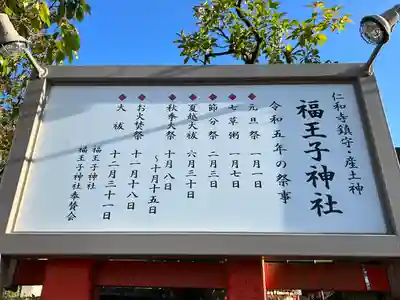 仁和寺鎮守・産土神
福王子神社
令和五年の祭事
◆元旦祭 一月一日
◆七草粥 一月七日
◆節分祭 二月三日
◆夏越大祓 六月三十日
◆秋季大祭 十月八日
～十月十五日
◆お火焚祭 十一月十八日
◆大祓 十二月三十一日
福王子神社
福王子神社奉賛会